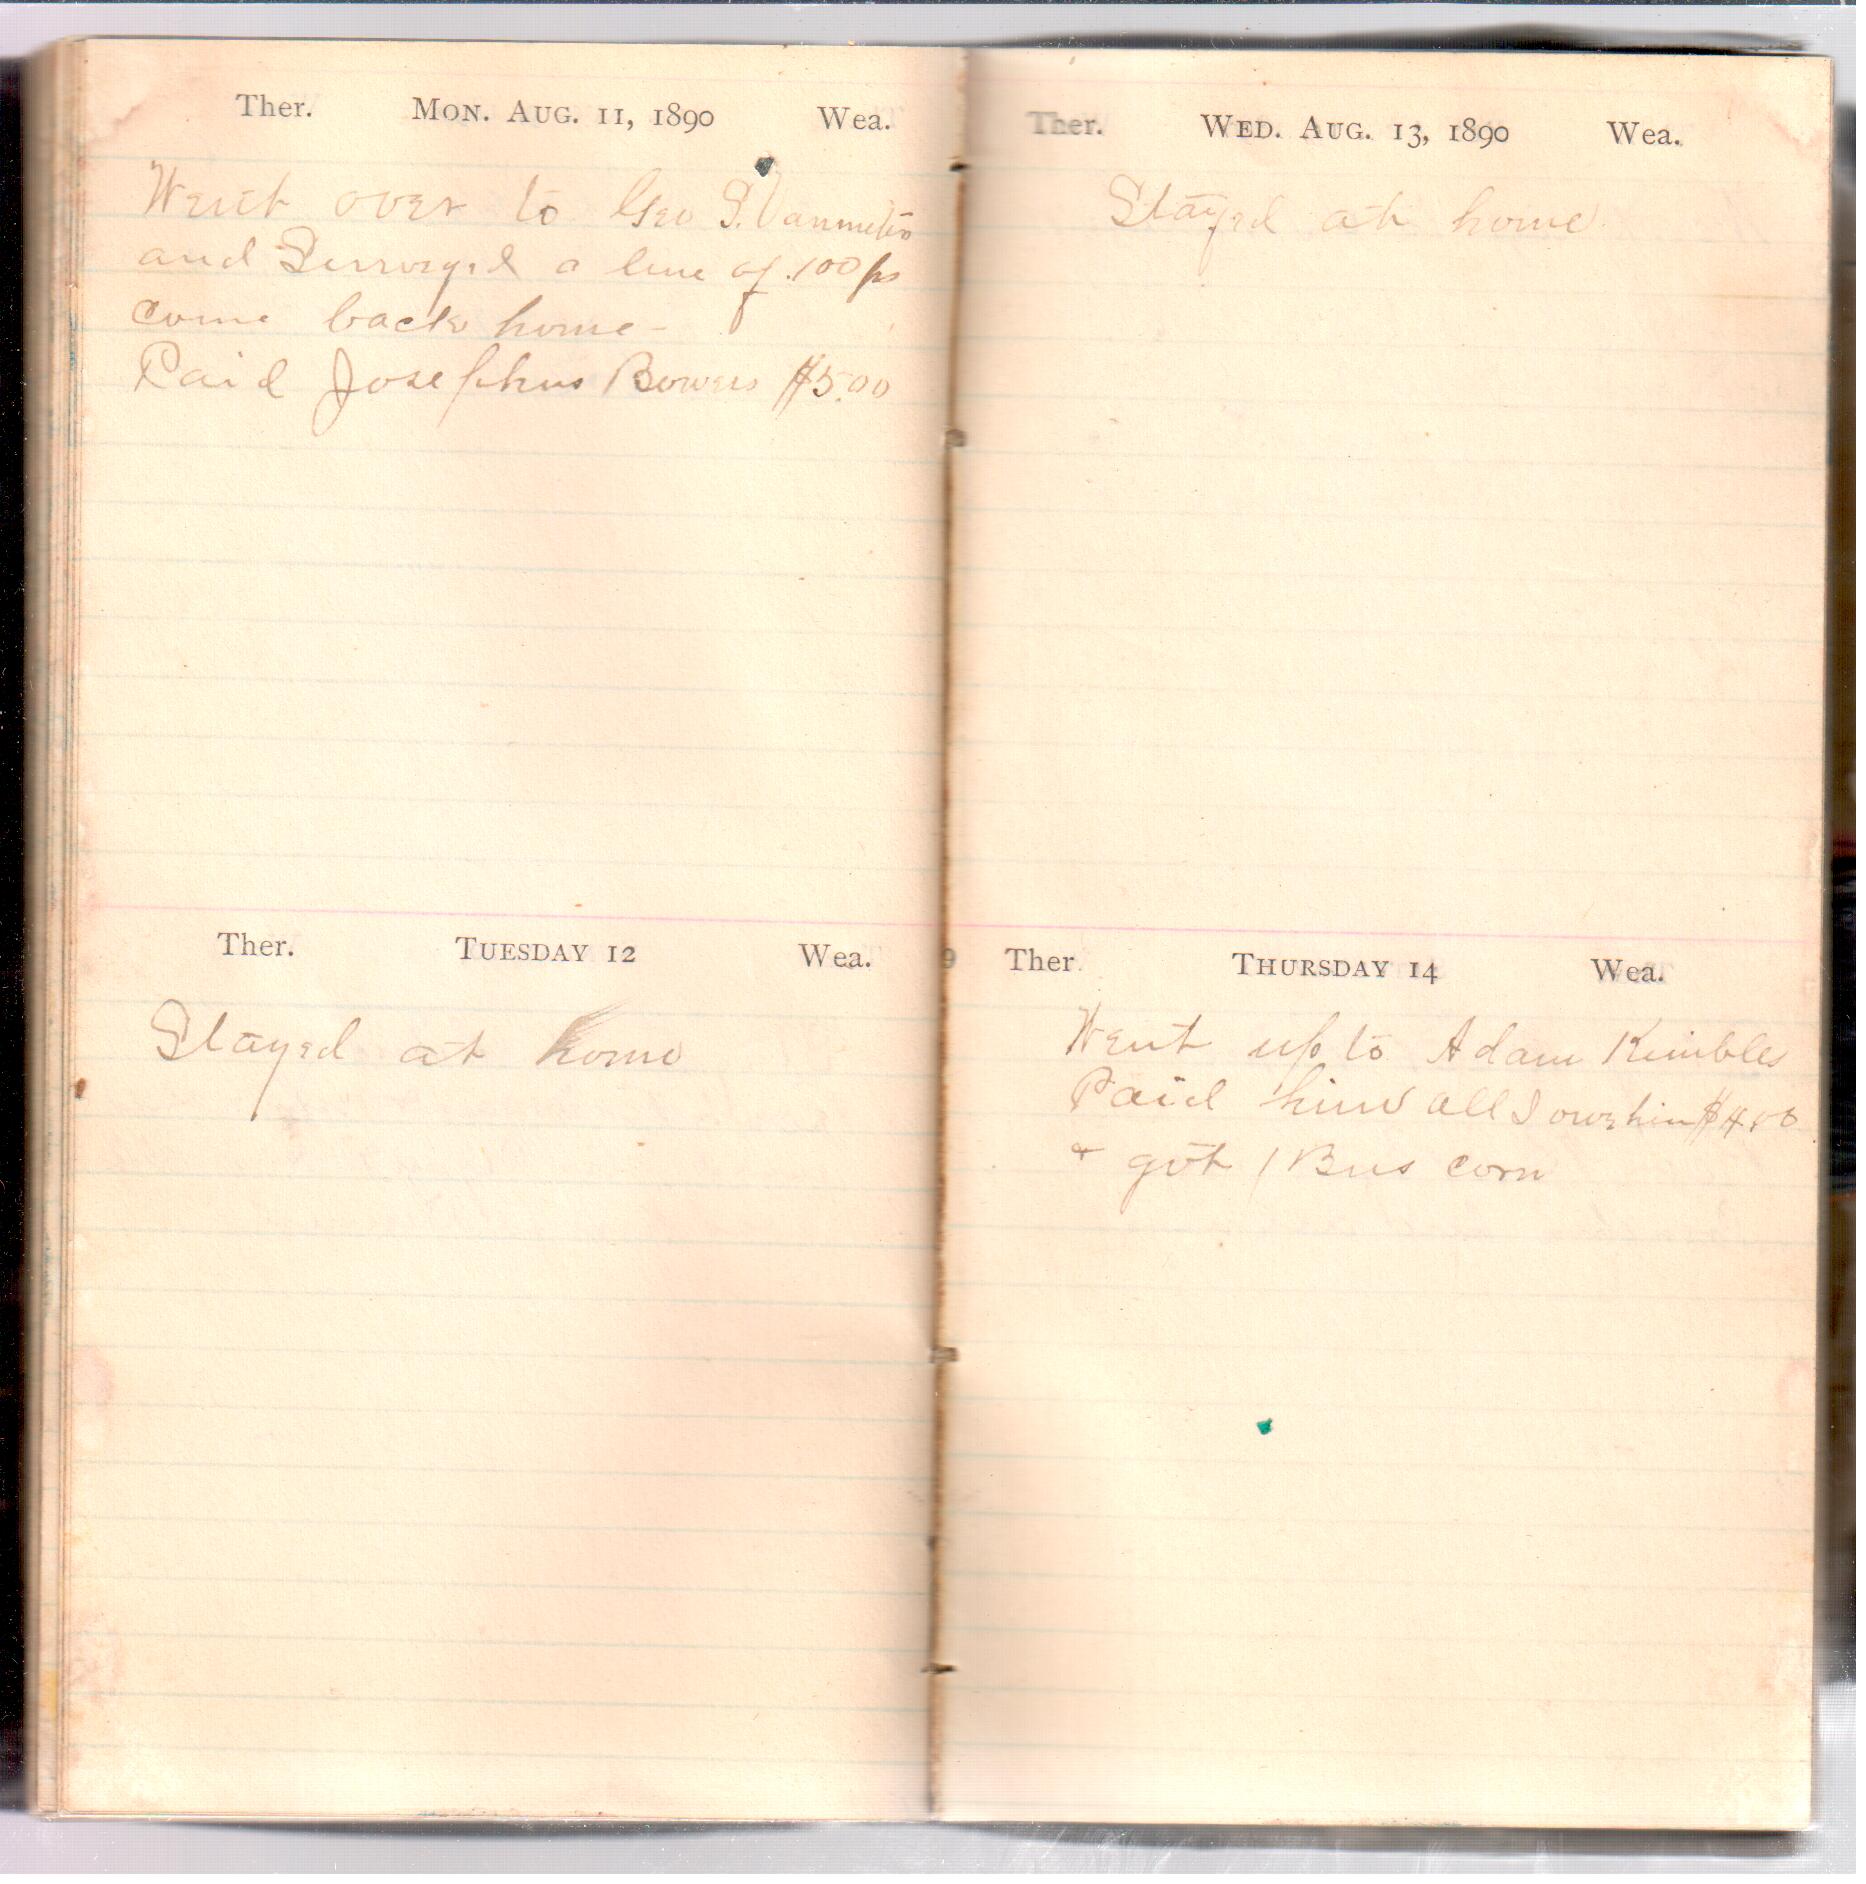 Ther. MON. AUG. 11, 1890 Wea.
Went over to Geo S. Vanmeters
and Surveyed a line of 100 ps
come back home -
Paid Josephus Bowers $5.00
Ther. TUESDAY 12 Wea.
Stayed at home
Ther. WED. AUG. 13, 1890 Wea.
Stayed at home
Ther THURSDAY 14 Wea.
Went up to Adam Kimbles
Paid him all I owe him
+ got 1 Bus corn